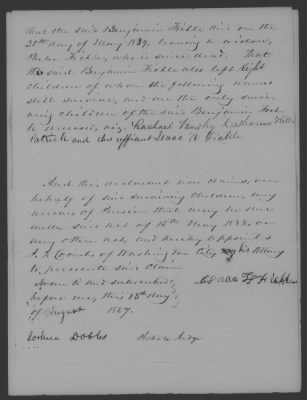 that the said Benjamin Fickle died on the
30th day of May 1839, leaving a widow,
Fickle, who is since dead. That
the said Benjamin Fickle also left Eight
children of whom the following named
still survive, and are the only surviv
ing children of the said Benjamin Fick
le deceased, viz, Rachael Catharine
Patrick and this affiant Isaac H Fickle
And this declarant now claims, on
behalf of said surviving children, any
arrears of Pension that may be due
under said act of 15th May 1828, or
any other act, and hereby appoint
Coombs of Washington City my his Attorney
to prosecute said claim
Sworn to and subscribed Isaac H Fickle
before me, this 15th day
of August 1857.
Joshua Dobbs Probate Judge